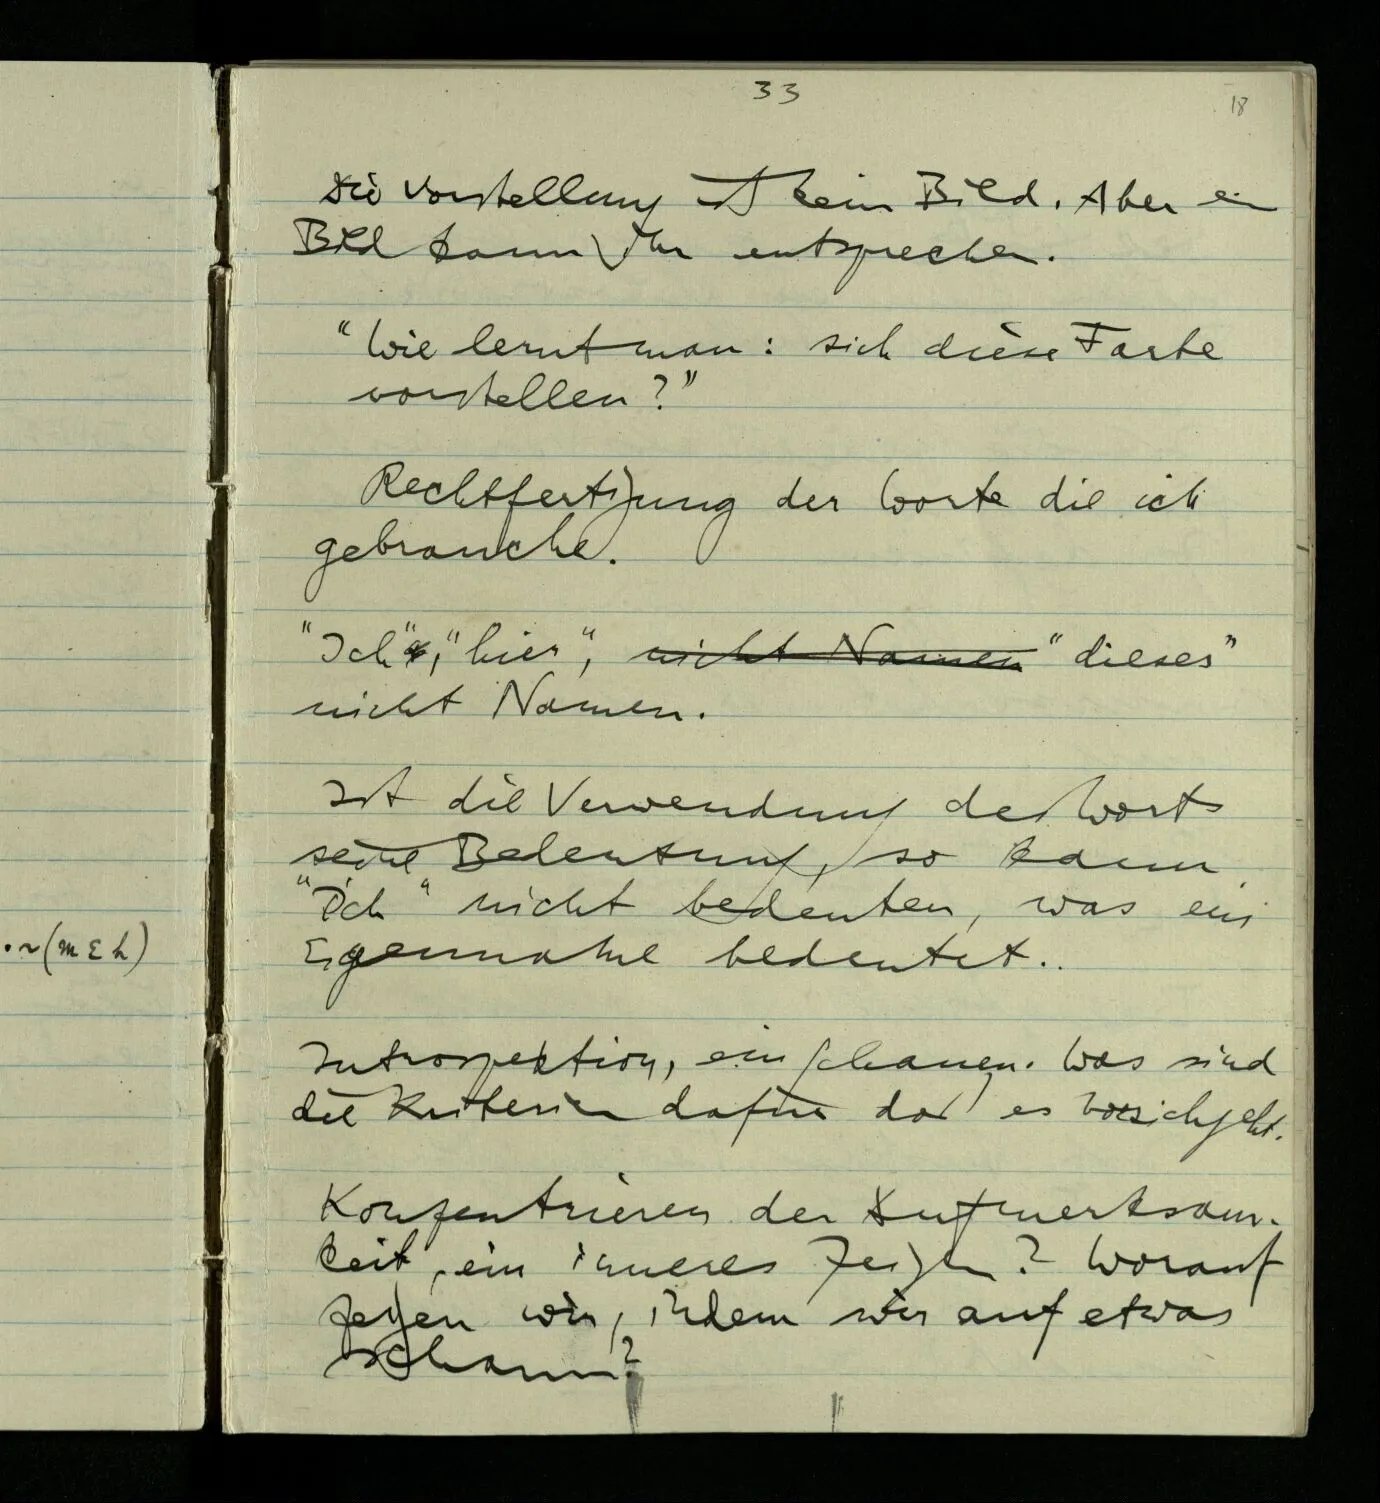 33
18
Die Vorstellung ist kein Bild. Aber ein
Bild kann ihr entsprechen.
"Wie lernt man: sich diese Farbe
vorstellen?"
Rechtfertigung der Worte die ich
gebrauche.
"Ich", "hier", nicht Namen "dieses"
nicht Namen.
Ist die Verwendung des Worts
seine Bedeutung, so kann
"Ich" nicht bedeuten, was ein
Eigenname bedeutet.
Introspektion, ein schauen. Was sind
die Kriterien dafür daß es vorsichgeht.
Konzentrieren der Aufmerksam-
keit, ein inneres Zeigen? Worauf
zeigen wir, indem wir auf etwas
schauen?
. ~ (m ε h)